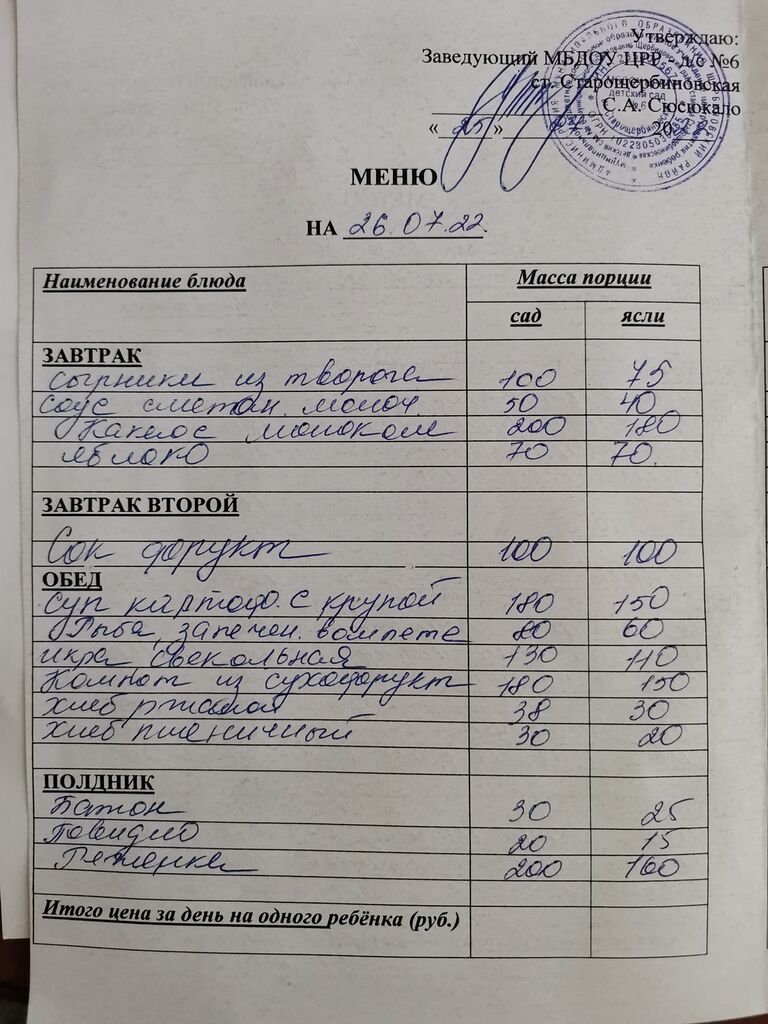 Утверждаю:
Заведующий МБДОУ ЦРР д/с №6
ст. Старощербиновская
С.А. Сюсюкало
« 25 » 20
МЕНЮ
НА 26.07.22.
Наименование блюда Масса порции
сад ясли
ЗАВТРАК
сырники из творога 100 75
соус сметан. молоч. 50 40
Какао с молоком 200 180
яблоко 70 70.
ЗАВТРАК ВТОРОЙ
Сок фрукт 100 100
ОБЕД
Суп картоф. с крупой 180 150
Рыба, запечен. в омлете 80 60
икра свекольная 130 110
Компот из сухофрукт 180 150
хлеб ржаной 38 30
хлеб пшеничный 30 20
ПОЛДНИК
Батон 30 25
Повидло 20 15
Ряженка 200 160
Итого цена за день на одного ребёнка (руб.)